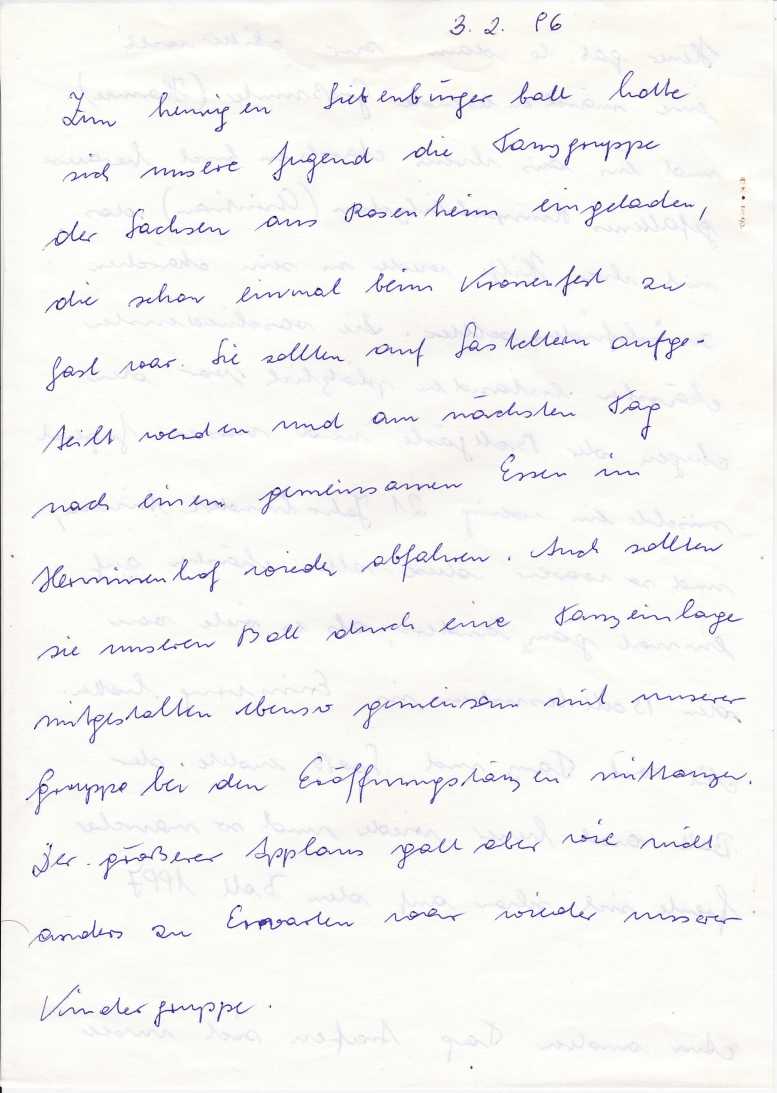 3. 2. 96
Zum heurigen Siebenbürger ball hatte
sich unsere Jugend die Tanzgruppe
der Sachsen aus Rosenheim eingeladen,
die schon einmal beim Kronenfest zu
Gast war. Sie sollten auf Gasteltern aufge-
teilt werden und am nächsten Tag
nach einem gemeinsamen Essen im
Herminenhof wieder abfahren. Auch sollten
sie unseren Ball durch eine Tanzeinlage
mitgestalten ebenso gemeinsam mit unserer
Gruppe bei den Eröffnungstänzen mittanzen.
Der größerer Applaus galt aber wie nicht
anders zu Erwarten war wieder unserer
Kindergruppe.